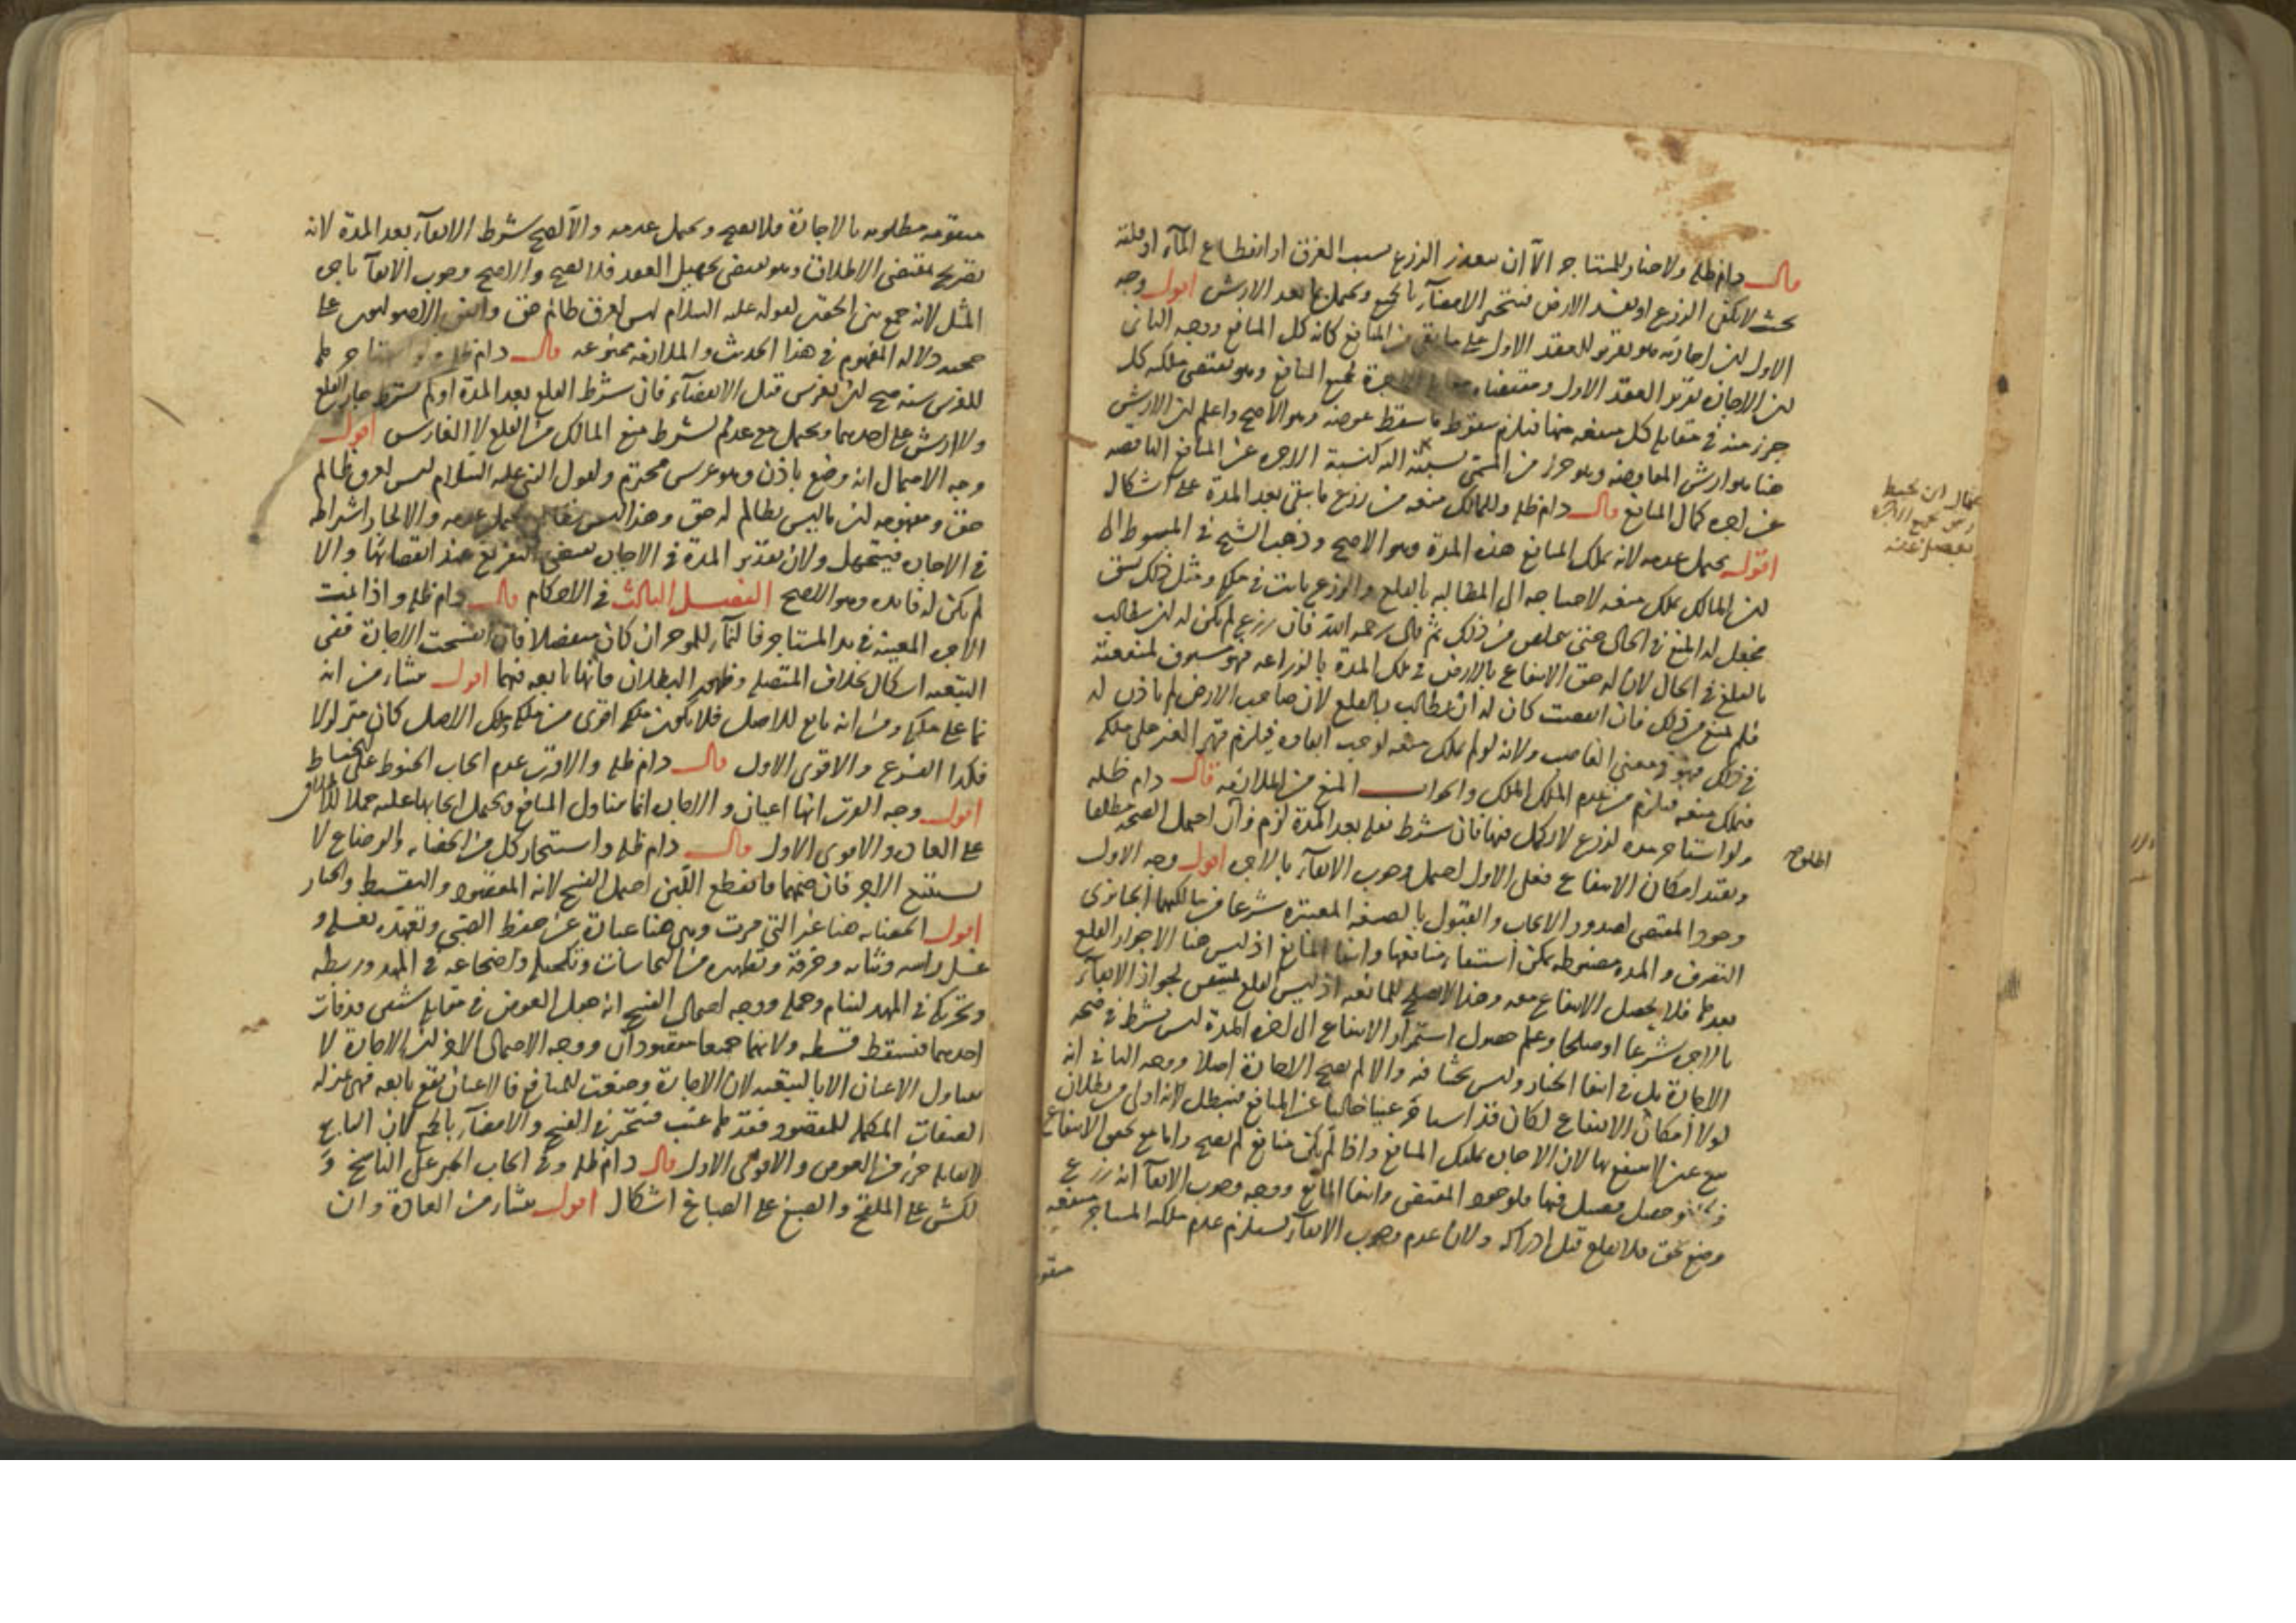 قال دام ظله ولا خيار للمستاجر الا ان يتعذر الزرع بسبب الغرق او انقطاع المآء او قلته
بحيث لا يكفى الزرع او يفسد الارض فيتخير الامضآء بالجميع ويحتمل بما بعد الارش اقول وجه
الاول لان اجازته هو تقرير للعقد الاول على ما بقى من المنافع كانه كل المنافع ووجه الثانى
لان الاجازة تقرير العقد الاول ومقتضاه الاجرة لجميع المنافع وهو يقتضى ملكه كل
جزء منه فى مقابله كل منفعه منها فيلزم سقوط ما سقط عوضه وهو الاصح واعلم ان الارش
هنا هو ارش المعاوضه وهو جزء من المسمى نسبته اليه كنسبة الاجره عن المنافع الناقصه
عن اجره كمال المنافع قال دام ظله وللمالك منعه من زرع ما يبقى بعد المدة على اشكال
اقول يحتمل عدمه لانه يملك المنافع هذه المدة وهو الاصح وذهب الشيخ فى المبسوط الى
ان المالك يملك منعه لاحتياجه الى المطالبه بالقلع والزرع ثابت فى ملكه ومثل ذلك يشق
فجعل له المنع فى الحال حتى يتخلص من ذلك ثم قال رحمه الله فان زرع لم يكن له ان يطالب
بالقلع فى الحال لان له حق الانتفاع بالارض فى تلك المدة بالزراعه فهو مستوف لمنفعته
فلم يمنع من ذلك فان انقضت كان له ان يطالب بالقلع لان صاحب الارض لم ياذن له
فى ذلك فهو فى معنى الغاصب ولانه لو لم يملك منعه لوجب ابقاوه فيلزم قهر الغير على ملكه
فيملك منعه فيلزم من عدم الملك الملك والجواب المنع من الملازمه قال دام ظله
ولو استاجر مده لزرع لا يكمل فيها فان شرط نقله بعد المدة لزم وان احتمل الصحه مطلقا
وبقيد امكان الانتفاع فعلى الاول احتمل وجوب الابقآء بالاجره اقول وجه الاول
وجود المقتضى لصدور الايجاب والقبول بالصيغه المعتبره شرعا من مالكهما الجائزى
التصرف والمده مضبوطه يمكن استيفاء منافعها وانتفا المانع اذ ليس هنا الا جواز القلع
بعدها فلا يحصل الانتفاع معه وهذا لا يصلح للمانعيه اذ ليس القلع لجواز الابقآء
بالاجره شرعا او صلحا وعدم حصول استمرار الانتفاع الى اخر المدة ليس بشرط فى صحه
الاجارة بل فى انتفا الخيار وليس بحثنا فيه والا لم يصح الاجارة اصلا ووجه الثانى انه
لولا امكان الانتفاع لكان قد استاجر عينا خاليا عن المنافع فيبطل لانه اولى من بطلان
بيع عين لا ينتفع بها لان الاجاره تملك المنافع واذا لم يكن منافع لم يصح واما مع الانتفاع
وحصل فيها فلوجود المقتضى وانتفا المانع ووجه وجوب الابقآ انه زرع
وضع بحق فلا يقلع قبل ادراكه ولان عدم وجوب الابقآء يستلزم عدم ملكه المستاجر منفعه
اطلوع
متقومه مطلوبه بالاجارة فلا يصح ويحتمل عدمه والا لصح شرط الابقآء بعد المدة لانه
تصريح بمقتضى الاطلاق وهو يقتضى تجهيل العقد فلا يصح والاصح وجوب الابقآ باجره
المثل لانه جمع بين الحقين لقوله عليه السلام ليس لعرق ظالم حق واتفق الاصوليون على
حجيه دلاله المفهوم فى هذا الحديث والملازمه ممنوعه قال دام ظله ولو استاجرها
للغرس سنه صح ان يغرس قبل الانقضآء فان شرط القلع بعد المدة او لم يشترط جاز القلع
ولا ارش على احدهما ويحتمل مع عدم الشرط منع المالك من القلع لا الغارس اقول
وجه الاحتمال انه وضع باذن وهو غرس محترم ولقول النبى عليه السلام ليس لعرق ظالم
حق ومفهومه ان ما ليس بظالم له حق وهذا ليس بظالم ويحتمل عدمه والا لجاز اشتراطه
فى الاجاره فيتجهل ولان تقدير المدة فى الاجاره يقتضى التفريغ عند انقضائها والا
لم يكن له فائده وهو الاصح الفصل الثالث فى الاحكام قال دام ظله واذا نمت
الاجره المعينه فى يد المستاجر فالنمآء للموجر ان كان منفصلا فان انفسخت الاجارة ففى
التبعيه اشكال بخلاف المتصله وظهور البطلان فانها تابعه فيهما اقول منشاء من انه
نما على ملكه ومن انه تابع للاصل فلا يكون ملكه اقوى من ملكه وملك الاصل كان متزلزلا
فكذا الفرع والاقوى الاول قال دام ظله والاقرب عدم ايجاب الخيوط على الخياط
اقول وجه القرب انها اعيان والاجاره انما يتناول المنافع ويحتمل ايجابها عليه حملا للاطلاق
على العاده والاقوى الاول قال دام ظله واستيجار كل من الحضانه والرضاع لا
يستتبع الاخر فان ضمهما فانقطع اللبن احتمل الفسخ لانه المقصود والتقسيط والخيار
اقول الحضانه هنا غير التى مرت وهى هنا عبارة عن حفظ الصبى وتعهده بغسله و
غسل راسه وثيابه وخرقه وتطهيره من النجاسات وتكحيله واضجاعه فى المهد وربطه
وتحريكه فى المهد لينام وحمله ووجه احتمال الفسخ انه جعل العوض فى مقابله شيئين وفات
احدهما فيسقط قسطه ولانهما جميعا مقصودان ووجه الاحتمال الاخر ان الاجارة لا
يتناول الاعيان الا بالتبعيه لان الاجارة وضعت للمنافع فالاعيان يقع تابعه فهى بمنزله
الصفات المكمله للمقصود ففقدها عيب فيتخير فى الفسخ والامضآء بالجميع لان التابع
لا يقابله جزء من العوض والاقوى الاول قال دام ظله وفى ايجاب الحبر على الناسخ و
الكش على الملقح والصبغ على الصباغ اشكال اقول منشاء من العادة وان